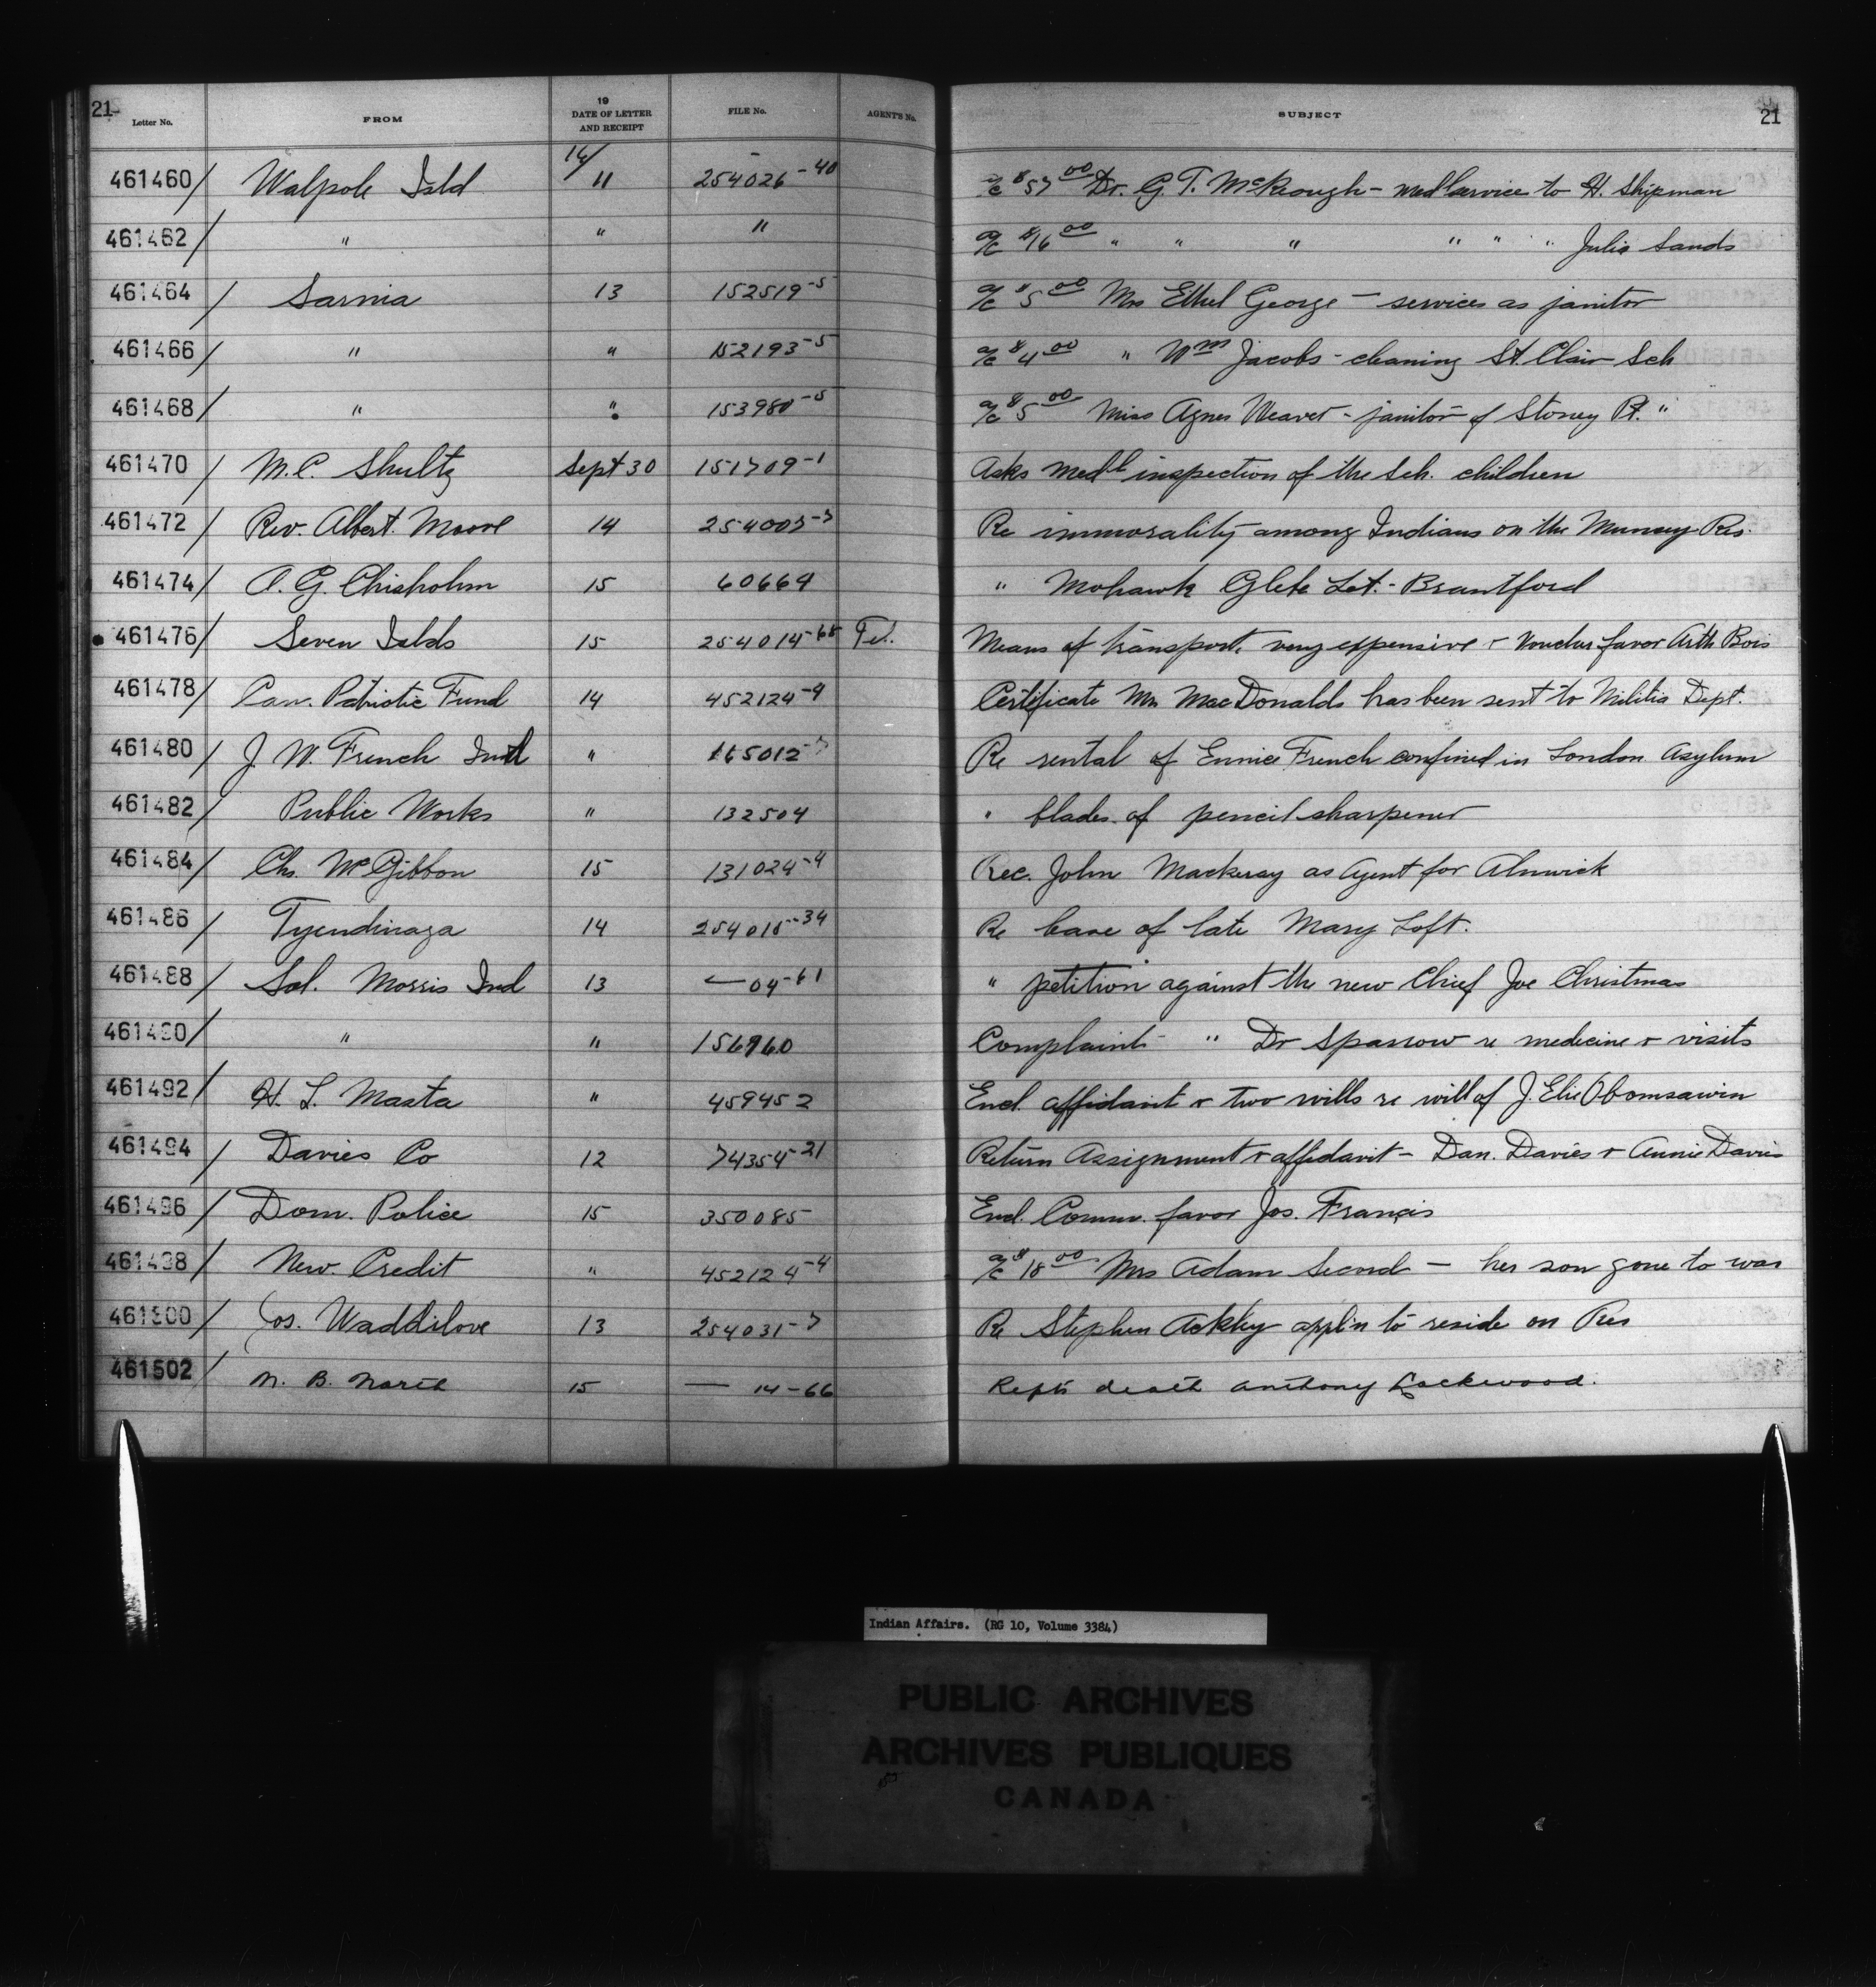 21 Letter No. FROM 19 DATE OF LETTER AND RECEIPT FILE No. AGENT'S No. SUBJECT 21
461460/ Walpole Isld 14/ 11 254026-40 a/c $57 00 Dr. G. T. McKeough - med service to H. Shipman
461462/ " " " a/c $16 00 " " " " " " Julia Sands
461464/ Sarnia 13 152519-5 a/c $5 00 Mrs Ethel George - services as janitor
461466/ " " 152193-5 a/c $4 00 " Wm Jacobs - cleaning St. Clair Sch
461468/ " " 153980-5 a/c $5 00 Miss Agnes Weaver - janitor of Stoney Pt. "
461470/ M.C. Shultz Sept 30 151709-1 Asks medl inspection of the Sch. children
461472/ Rev. Albert Moore 14 254003-7 Re immorality among Indians on the Muncey Res.
461474/ A. G. Chisholm 15 60664 " Mohawk Glebe Lot - Brantford
461476/ Seven Islds 15 254014-65 Tel. Means of transport. very expensive & voucher favor Arth Bois
461478/ Can. Patriotic Fund 14 452124-4 Certificate Mrs MacDonalds has been sent to Militia Dept.
461480/ J. W. French Ind " 165012-7 Re rental of Eunice French confined in London Asylum
461482/ Public Works " 132504 " blades of pencil sharpener
461484/ Chs. McGibbon 15 131024-4 Rec. John Mackeray as Agent for Alnwick
461486/ Tyendinaga 14 254015-34 Re case of late Mary Loft.
461488/ Sol. Morris Ind 13 — 04-61 " petition against the new Chief Joe Christmas
461490/ " " 156960 Complaint " Dr Sparrow re medicine & visits
461492/ H. L. Masta " 459452 Encl. affidavit & two wills re will of J. Elie Obomsawin
461494/ Davies Co 12 74354-21 Return Assignment & affidavit - Dan. Davies & Annie Davis
461496/ Dom. Police 15 350085 Encl. Comm. favor Jos. Francis
461498/ New Credit " 452124-4 a/c $18 00 Mrs Adam Secord - her son gone to war
461500/ Jos. Waddilove 13 254031-7 Re Stephen appl'n to reside on Res
461502/ N. B. North 15 — 14-66 Repts death Anthony Lockwood.
Indian Affairs. (RG 10, Volume 3384)
PUBLIC ARCHIVES
ARCHIVES PUBLIQUES
CANADA